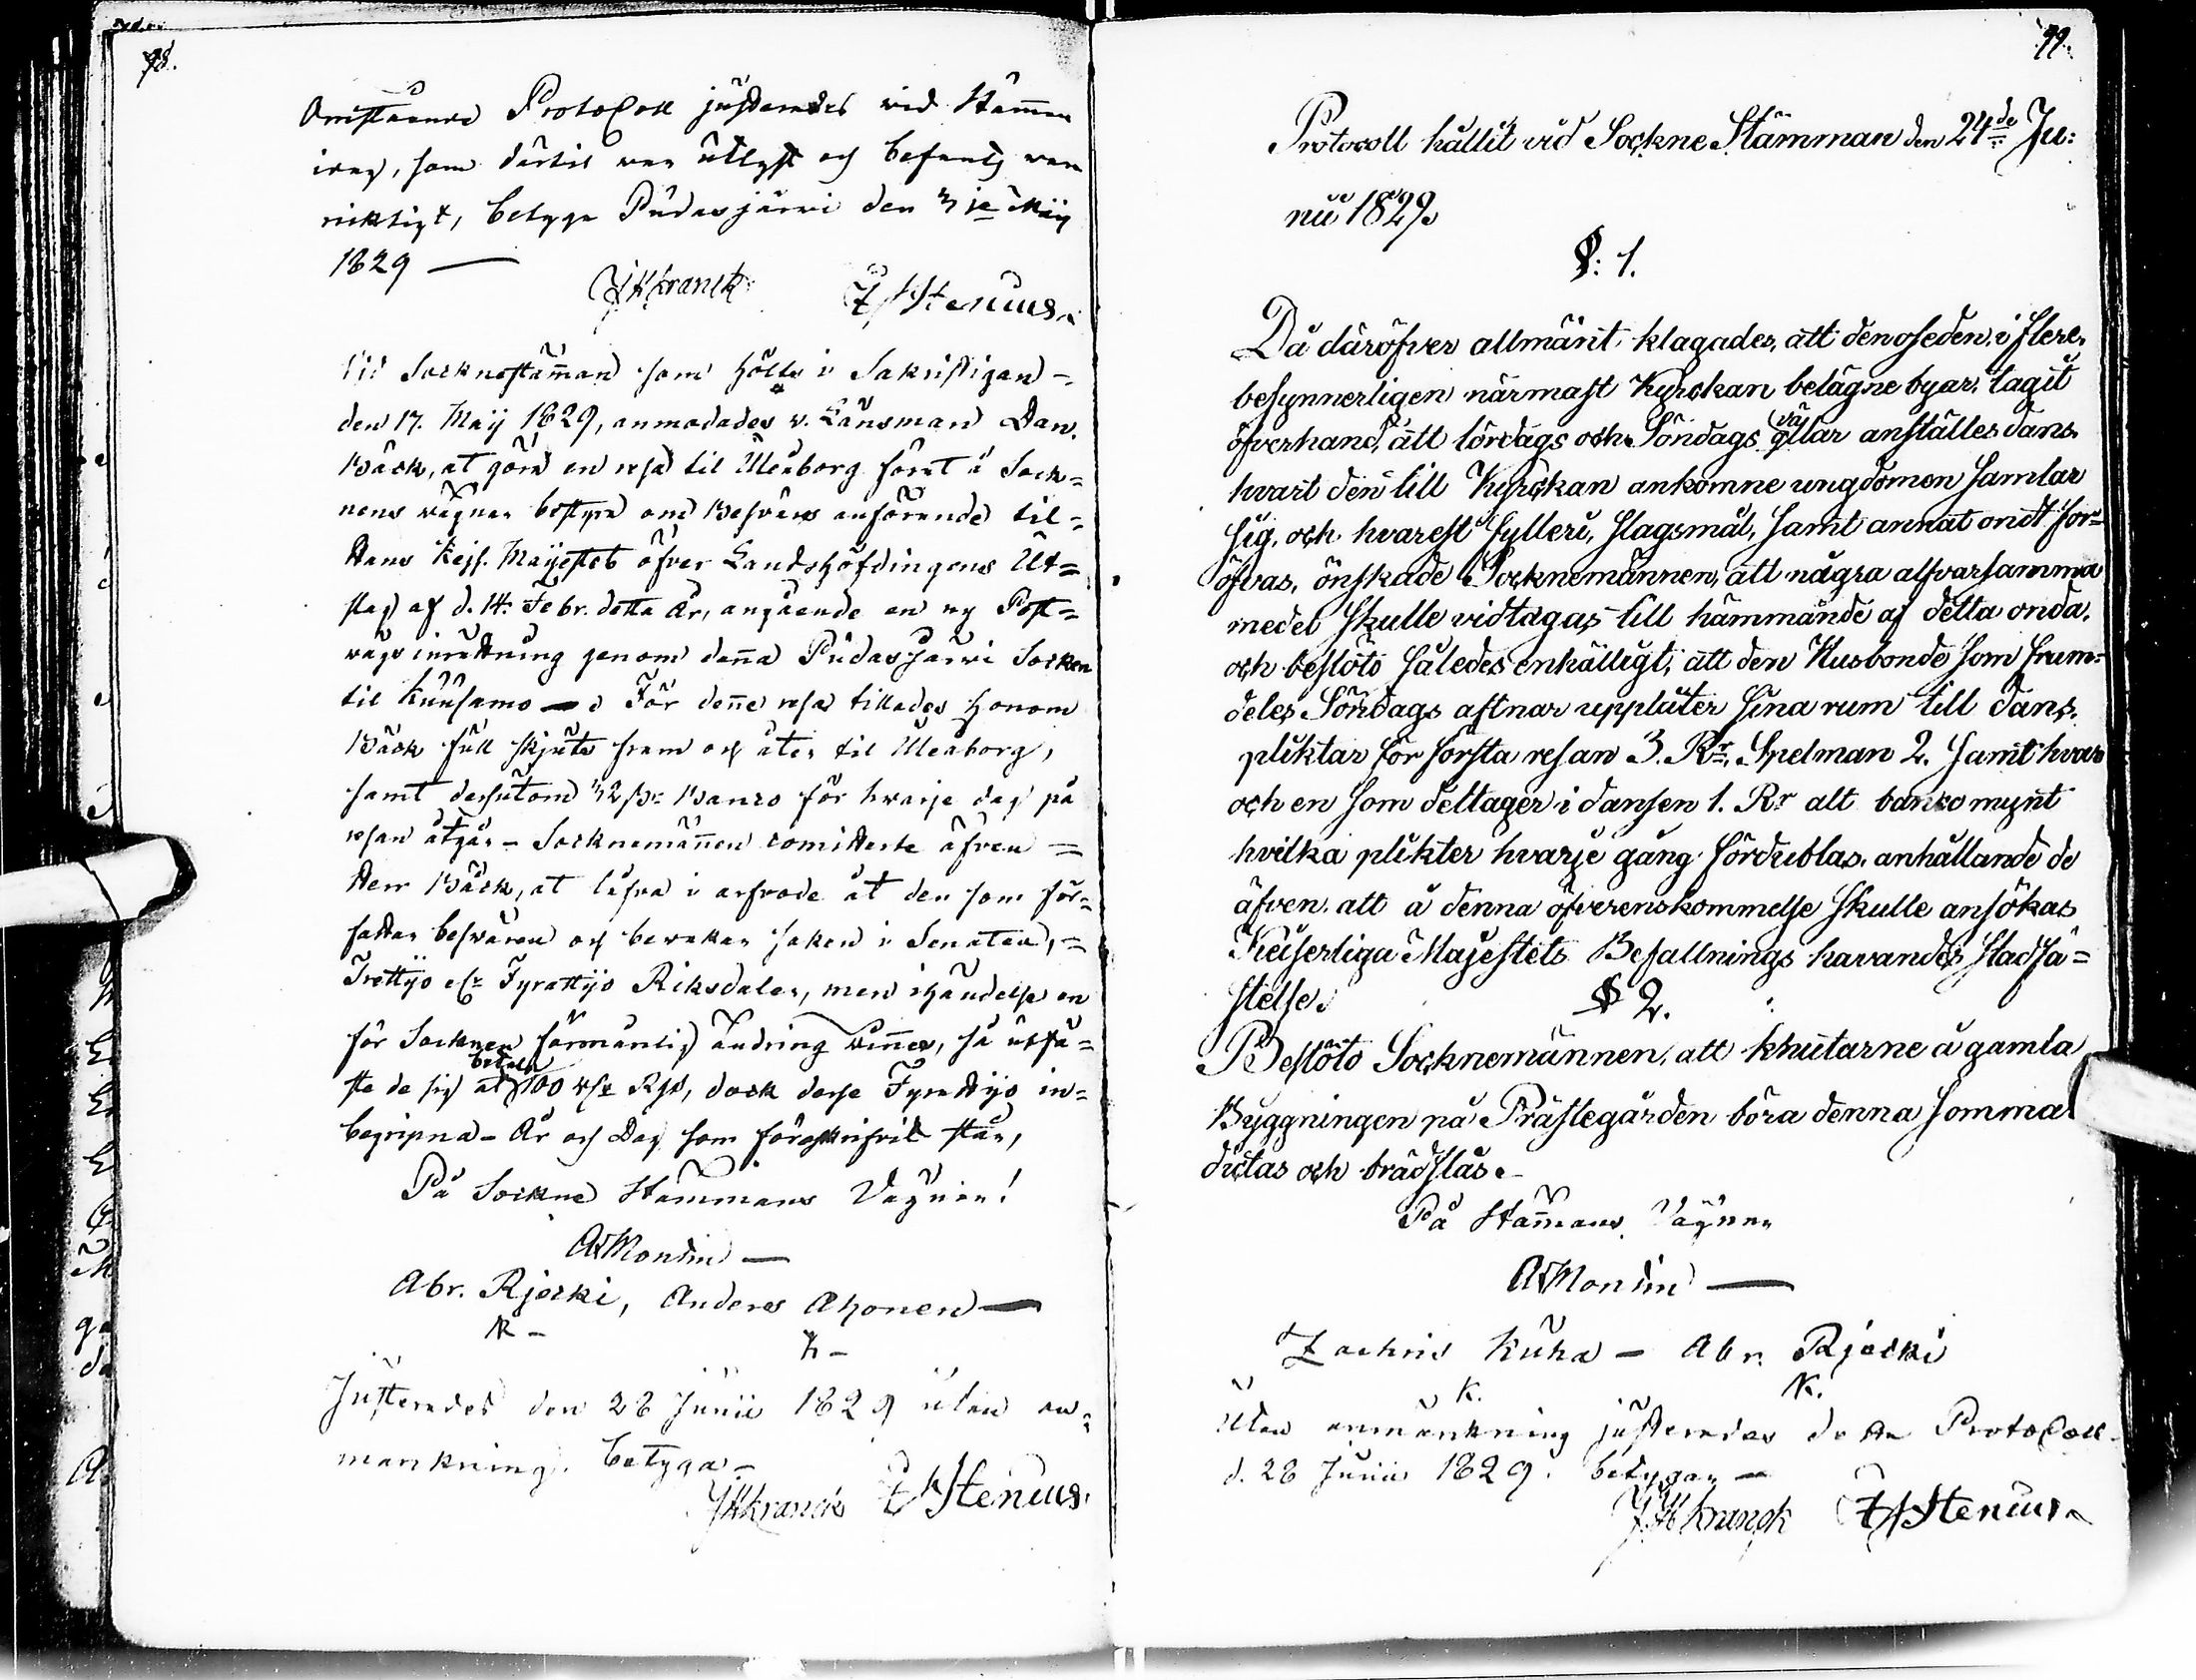 78.
Protocoll justerades vid Stämman
idag, som därtil var utlyst och befants vara
riktigt, betyga Pudasjärvi den 31e Maij
1829 —
JHKranck ZStenius
Vid Socknestämman som hölts i Sakristigan
den 17. Maij 1829, anmodades v. Länsman Dan.
Bäck, at göra en resa til Uleåborg samt å Sock=
nens vägnar bestyra om Besvärs anförande til
Hans Kejs. Maijestet öfver Landshöfdingens Ut=
slag af d. 14. Febr. detta År, angående en ny Post=
vägs inrättning genom denna Pudasjärvi Socken
til Kuusamo — För denne resa tillades honom
Bäck full skjuts fram och åter til Uleåborg,
samt dessutom 32 s. Banco för hvarje dag på
resan åtgår – Socknemännen comitterte äfven
Herr Bäck, at lofva i arfvode åt den som för=
fattar besvären och bevakar saken i Senaten,
Trettijo eller Fyrattijo Riksdaler, men i händelse en
för Socknen förmånlig ändring vinnes, så utfä=
ste de sig at betala 100 Rd, dock desse Fyrattijo in=
begripna – År och Dag som föreskrifvit står,
På Sockne Stämmans Vägnar!
A Montin —
Abr. Rjecki, Anders Ahonen —
R – h –
Justerades den 28 Junii 1829 utan an=
märkning, betyga –
JHKranck ZStenius.
79.
Protocoll hållit vid Sockne Stämman den 24de Ju:
nii 1829.
§: 1.
Då däröfver allmänt klagades, att den oseden i flere,
besynnerligen närmast Kyrckan belägne byar, tagit
öfverhand, att lördags och Söndags qvällar anställes dans
hvart den till Kyrckan ankomne ungdomen samlar
sig, och hvarest fylleri, slagsmål, samt annat ondt för=
öfvas, önskade Socknemännen, att några alfvarsamma
medel skulle vidtagas till hämmande af detta onda,
och beslöto således enhälligt, att den Husbonde som fram=
deles Söndags aftnar uppluter sina rum till dans,
pliktar för första resan 3. Rr, Spelman 2. samt hvar
och en som deltager i dansen 1. Rr alt banco mynt
hvilka plikter hvarje gång fördublas, anhållande de
äfven, att å denna öfverenskommelse skulle ansökas
Keijserliga Majestets Befallnings havandes stadfä=
stelse.
§ 2.
Beslöto Socknemännen, att knutarne å gamla
Byggningen på Prästegården böra denna sommar
dictas och brädslås.
På Stämmans Vägnar
A Montin —
Zachris Kuha – Abr. Rjecki
K. R.
Utan anmärkning justerades detta Protocoll
d. 28 Junii 1829. betygar —
JHKranck ZStenius